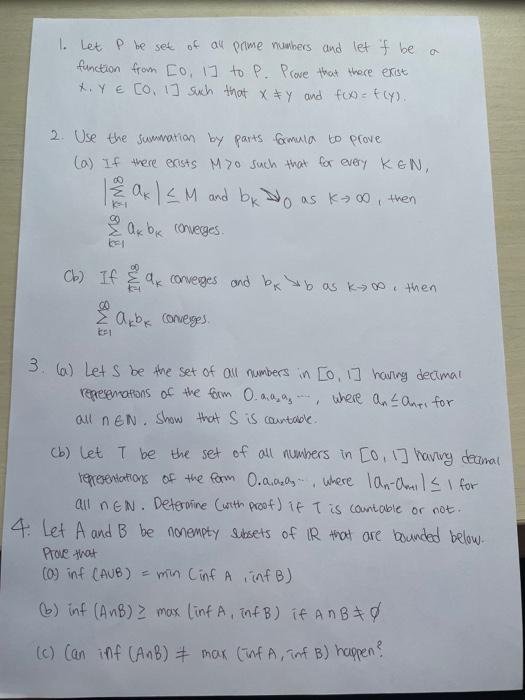 1. Let P be set of all prime numbers and let f be a
function from [0, 1] to P. Prove that there exist
x, y ∈ [0, 1] such that x ≠ y and f(x) = f(y).
2. Use the summation by parts formula to prove
(a) If there exists M>0 such that for every K ∈ N,
|∑_{k=1}^{∞} a_k| ≤ M and b_k ↘ 0 as k → ∞, then
∑_{k=1}^{∞} a_k b_k converges.
(b) If ∑_{k=1}^{∞} a_k converges and b_k ↘ b as k → ∞, then
∑_{k=1}^{∞} a_k b_k converges.
3. (a) Let S be the set of all numbers in [0, 1] having decimal
representations of the form 0.a₁a₂a₃ ..., where aₙ ≤ aₙ₊₁ for
all n ∈ N. Show that S is countable.
(b) Let T be the set of all numbers in [0, 1] having decimal
representations of the form 0.a₁a₂a₃..., where |aₙ-aₙ₊₁| ≤ 1 for
all n ∈ N. Determine (with proof) if T is countable or not.
4. Let A and B be nonempty subsets of IR that are bounded below.
Prove that
(a) inf (A∪B) = min (inf A, inf B)
(b) inf (A∩B) ≥ max (inf A, inf B) if A∩B ≠ ∅
(c) Can inf (A∩B) ≠ max (inf A, inf B) happen?